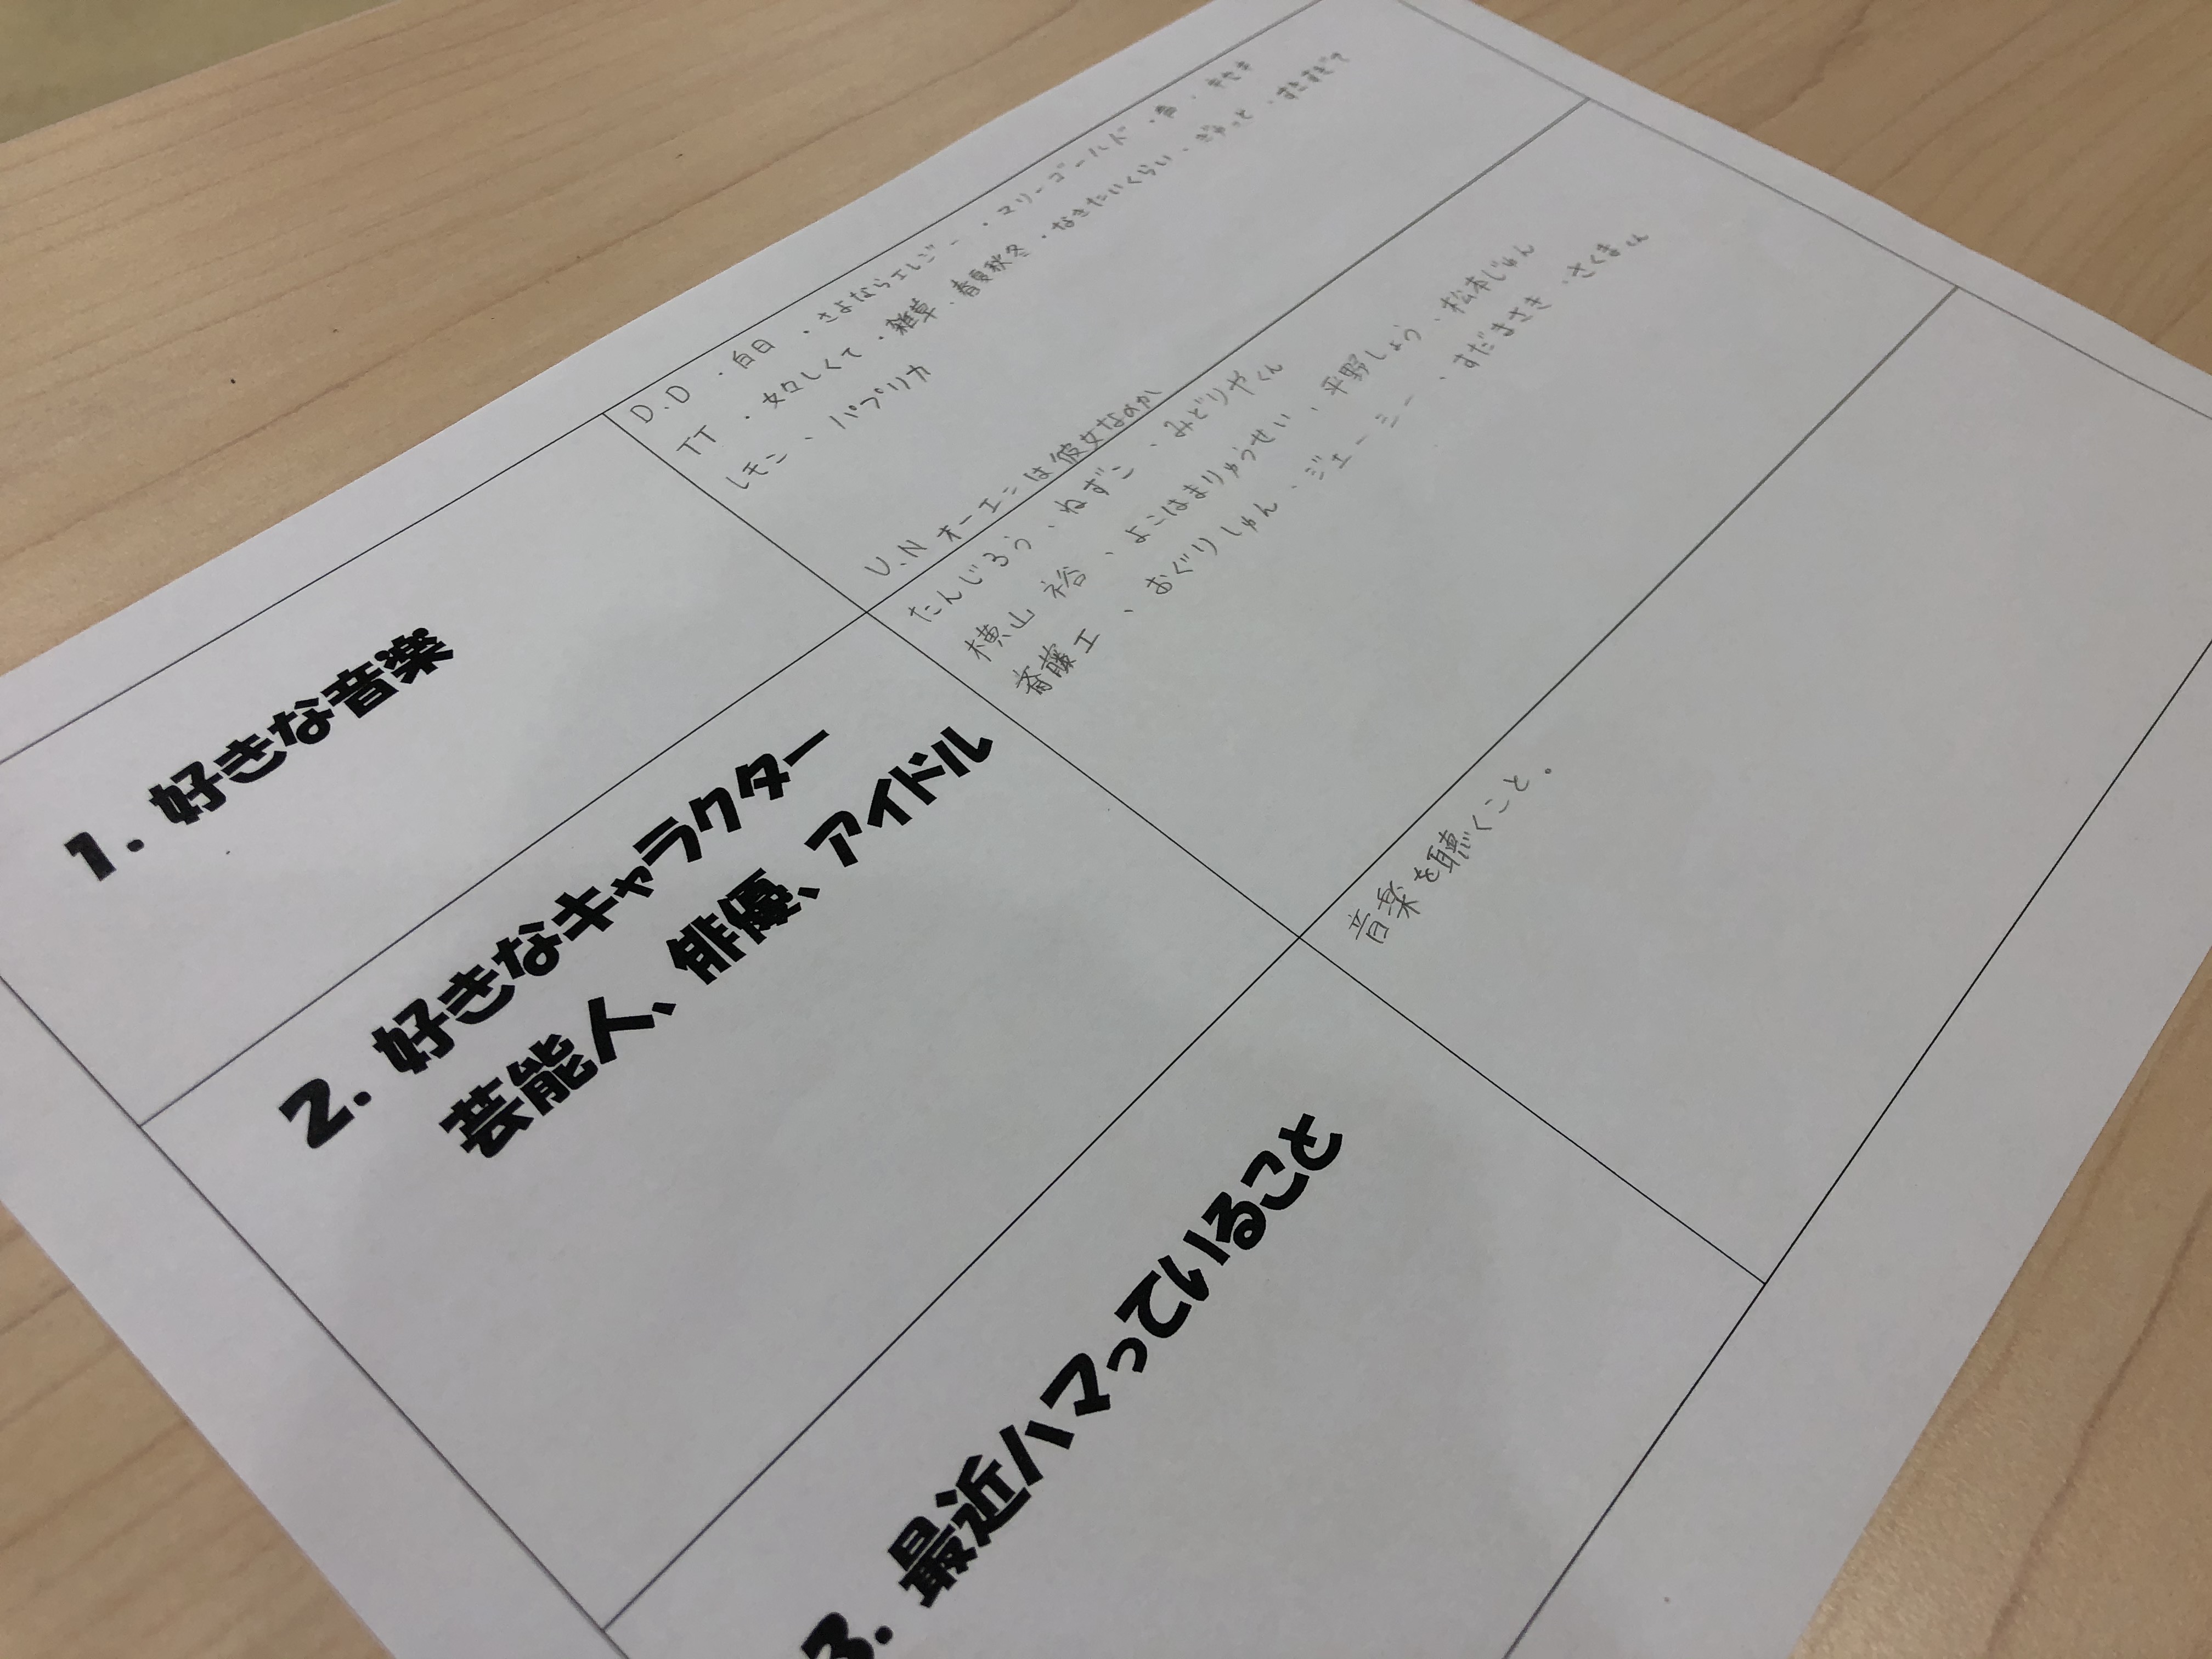 1. 好きな音楽
D.D ・白日 ・さよならエレジー ・マリーゴールド ・ キセキ
TT ・女々しくて ・雑草 ・春夏秋冬 ・なきたいくらい ・ぎゅっと ・すきすぎて
レモン 、パプリカ
U.N オーエンは彼女なのか
2. 好きなキャラクター
芸能人、俳優、アイドル
たんじろう 、ねずこ 、みどりやくん
横山 裕 、よこはまりゅうせい 、平野しょう 、松本じゅん
斎藤工 、おぐりしゅん 、ジェーシー 、すだまさき 、さくまくん
3. 最近ハマっていること
音楽を聴くこと。